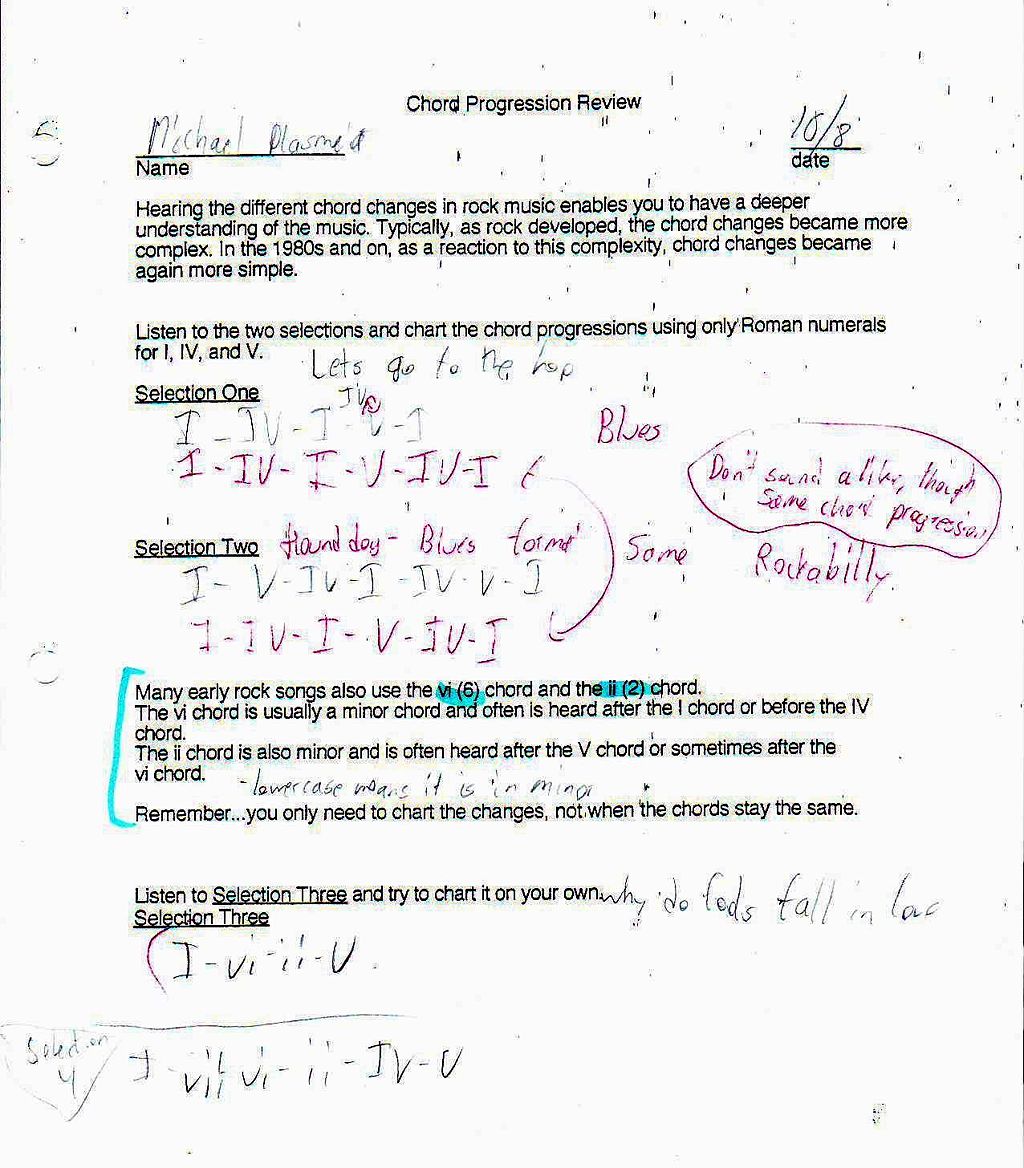 Chord Progression Review
Michael
10/8
Name
date
Hearing the different chord changes in rock music enables you to have a deeper
understanding of the music. Typically, as rock developed, the chord changes became more
complex. In the 1980s and on, as a reaction to this complexity, chord changes became
again more simple.
Listen to the two selections and chart the chord progressions using only Roman numerals
for I, IV, and V.
Lets go to the hop
Selection One
IV
I - IV - I - V - I
Blues
I - IV - I - V - IV - I
Don't sound alike, though
Same chord progression
Selection Two Hound dog - Blues format
Same
Rockabilly
I - V - IV - I - IV - V - I
I - IV - I - V - IV - I
Many early rock songs also use the vi (6) chord and the ii (2) chord.
The vi chord is usually a minor chord and often is heard after the I chord or before the IV
chord.
The ii chord is also minor and is often heard after the V chord or sometimes after the
vi chord.
- lowercase means it is in minor
Remember...you only need to chart the changes, not when the chords stay the same.
Listen to Selection Three and try to chart it on your own.
why do fools fall in love
Selection Three
I - vi - ii - V
Selection
4
I - vii - vi - ii - IV - V